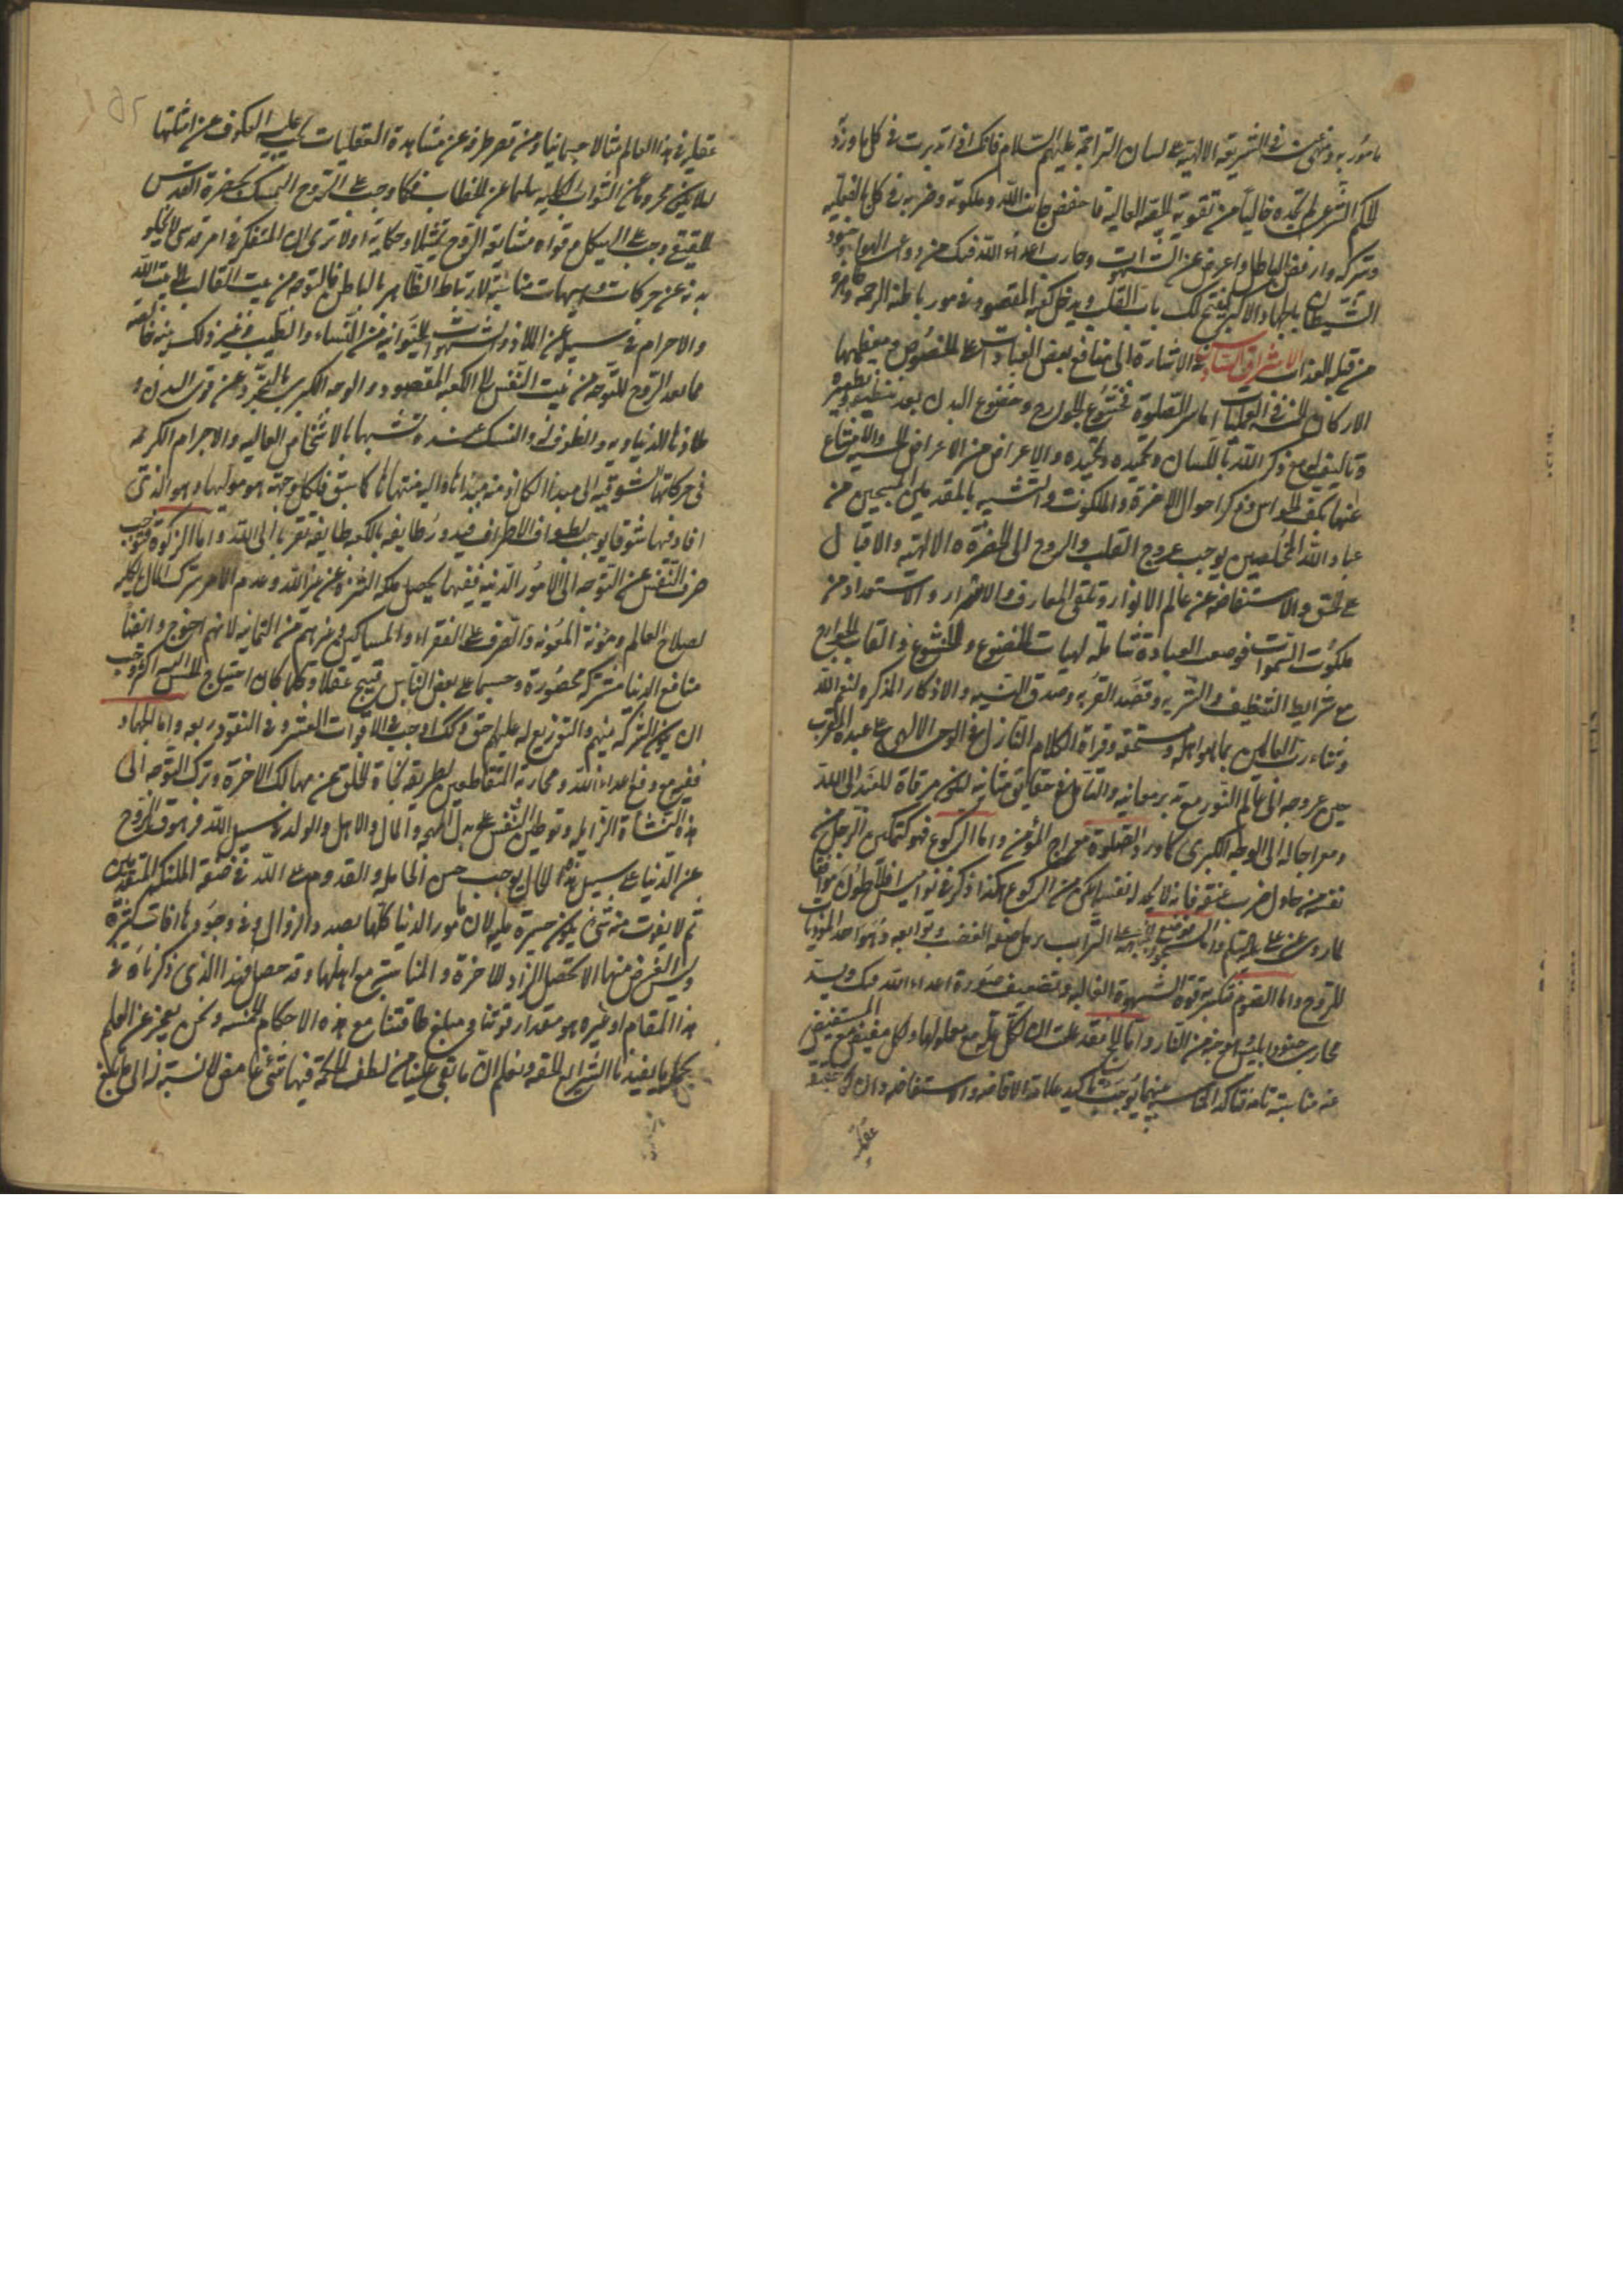 مأمور به ومنهي عنه في الشريعة الالهية على لسان التراجمة عليهم السلام فانك اذا تدبرت في كل ما ورد
للحكم الشرعي لم تجده خاليا من تقوية الجنبة العالية فاحفظ جانب الله وملكوته وحزبه في كل ما تفعله
وتتركه وارفض الباطل واعرض عن الشهوات وحارب اعداء الله فيك من دواعي الهوى وجنود
الشيطان بالجهاد الاكبر ليفتح لك باب القلب ويدخل كعبة المقصود في سور باطنه الرحمة وظاهره
من قبله العذاب الاشراق السادس في الاشارة الى منافع بعض العبادات على الخصوص ومعظمها
الاركان الخمسة في العمليات اما سر الصلوة فخشوع الجوارح وخضوع البدن بعد تنظيفه وتطهيره
مع ذكر الله باللسان وتحميده وتمجيده والاعراض عن الاعراض الحسية والامتناع
عنها بكف الحواس وذكر احوال الاخرة والملكوت والتشبه بالمقدسين المسبحين من
عباد الله المخلصين يوجب عروج القلب والروح الى الحضرة الالهية والاقبال
على الحق والاستفاضة عن عالم الانوار وتلقي المعارف والاسرار والاستمداد من
ملكوت السموات فوضعت العبادة شاملة لهيات الخضوع والخشوع واتعاب الجوارح
مع شرايط التنظيف والتنزيه وقصد القربة وصدق النية والاذكار المذكرة لنعم الله
وثناء رب العالمين بما هو اهله ومستحقه وقراة الكلام النازل في الوحي الالهي على عبده المقرب
حين عروجه الى عالم النور مع تدبر معانيه والتامل في حقايق مثانيه ليكون مرقاة للعبد الى الله
ومعراجا له الى الوجه الكبرى كما ورد الصلوة معراج المؤمن واما الركوع فهو كتمكين الرجل من
نفسه من حاول ضرب عنقه فانه لا يجد لنفسه امكن من الركوع هكذا ذكر في نواميس افلاطون موافقا
لما روي عن علي عليه السلم واما السجود فوضع الجبهة على التراب يزيل صفة الغضب وتوابعه وهو احد المؤذيات
للروح واما الصوم فتكسير قوة الشهوة الغالبة وتضعيف صورة اعداء الله فيك وسد
مجاري جنود ابليس وهو جنة من النار واما الحج فقد علمت ان لكل علة مع معلولها ولكل مفيض مع المستفيض
عنه مناسبة تامة تاكد المناسبة بينهما يوجب تاكيد علاقة الافاضة والاستفاضة وان لكل حقيقة
عقلية
عقلية في هذا العالم مثالا جسمانيا ومن قصر طرفه عن مشاهدة العقليات يجب عليه العكوف عن امثلتها
لئلا يكون محروما عن الثواب بالكلية سليما عن الخطاب فكما وجب على الروح التمسك بحضرة القدس
الحقيقي وجب على الهيكل وقواه مشايعة الروح تمثيلا وحكاية اولا ترى ان المتفكر في امر قدسي لا يخلو
بدنه عن حركات وهيات مناسبة لارتباط الظاهر بالباطن فالتوجه من بيت القالب الى بيت الله
والاحرام في سبيله عن اللذائذ والشهوات الحيوانية من النساء والطيب وغير ذلك
مما يعد الروح للتوجه من بيت النفس الى الكعبة المقصود والوجه الكبرى بالتجرد عن قوى البدن و
ملاذها الدنياوية والطوف والنسك عنده تشبها بالاشخاص العالية والاجرام الكريمة
في حركاتها الشوقية الى مبدأ الكل اذ منه مبدأها واليه منتهاها كما سبق فلكل وجهة هو موليها وهو الذي
افاد فيها شوقا يوجب لطواف الاطراف فيدور طايفه بالكعبة طايفة تقربا الى الله واما الزكوة فتوجب
صرف النفس عن التوجه الى الامور الدنية ففيها يحصل ملكة التنزه عن غير الله وعدم الامر بترك المال بالكلية
لصلاح العالم ومؤنة المعونة والصرف على الفقراء والمساكين وغيرهم من الثمانية لانهم احوج وايضا
منافع الدنيا مشتركة محصورة وحبسها على بعض الناس قبيح عقلا وكلما كان احتياج الناس اليه اكثر وجب
ان يكون الشركة منهم والتوزيع له عليهم حق ذلك اوجب في الاقوات العشر وفي النقود ربعه واما الجهاد
ففيه مع دفع اعداء الله ومحاربة القاطعين لطريقه نجاة الخلق عن مهالك الاخرة وترك التوجه الى
هذه النشأة الزايلة وتوطين النفس على بذل المهج والمال والاهل والولد في سبيل الله فرهوق الروح
عن الدنيا على سبيل هذا الحال يوجب حسن الخاتمة والقدوم على الله في صفة الملئكة المقدسين
ثم لا يفوت منه شئ يكون حسرة عليه لان امور الدنيا كلها بصدد الزوال وفي وجودها افات كثيرة
وليس الغرض منها الا تحصيل الزاد للاخرة والمناسبة مع اهلها وقد حصل فهذا الذي ذكرناه في
هذا المقام او غيره هو مقدار قوتنا ومبلغ طاقتنا مع هذه الاحكام الخمسة ونحن بعجز عن العلم
بجميع ما يفيدنا الشرايع الحقة ونعلم ان ما بقي علينا من لطف الحكمة فيها شئ غامض لا نسبة له الى ما بلغ